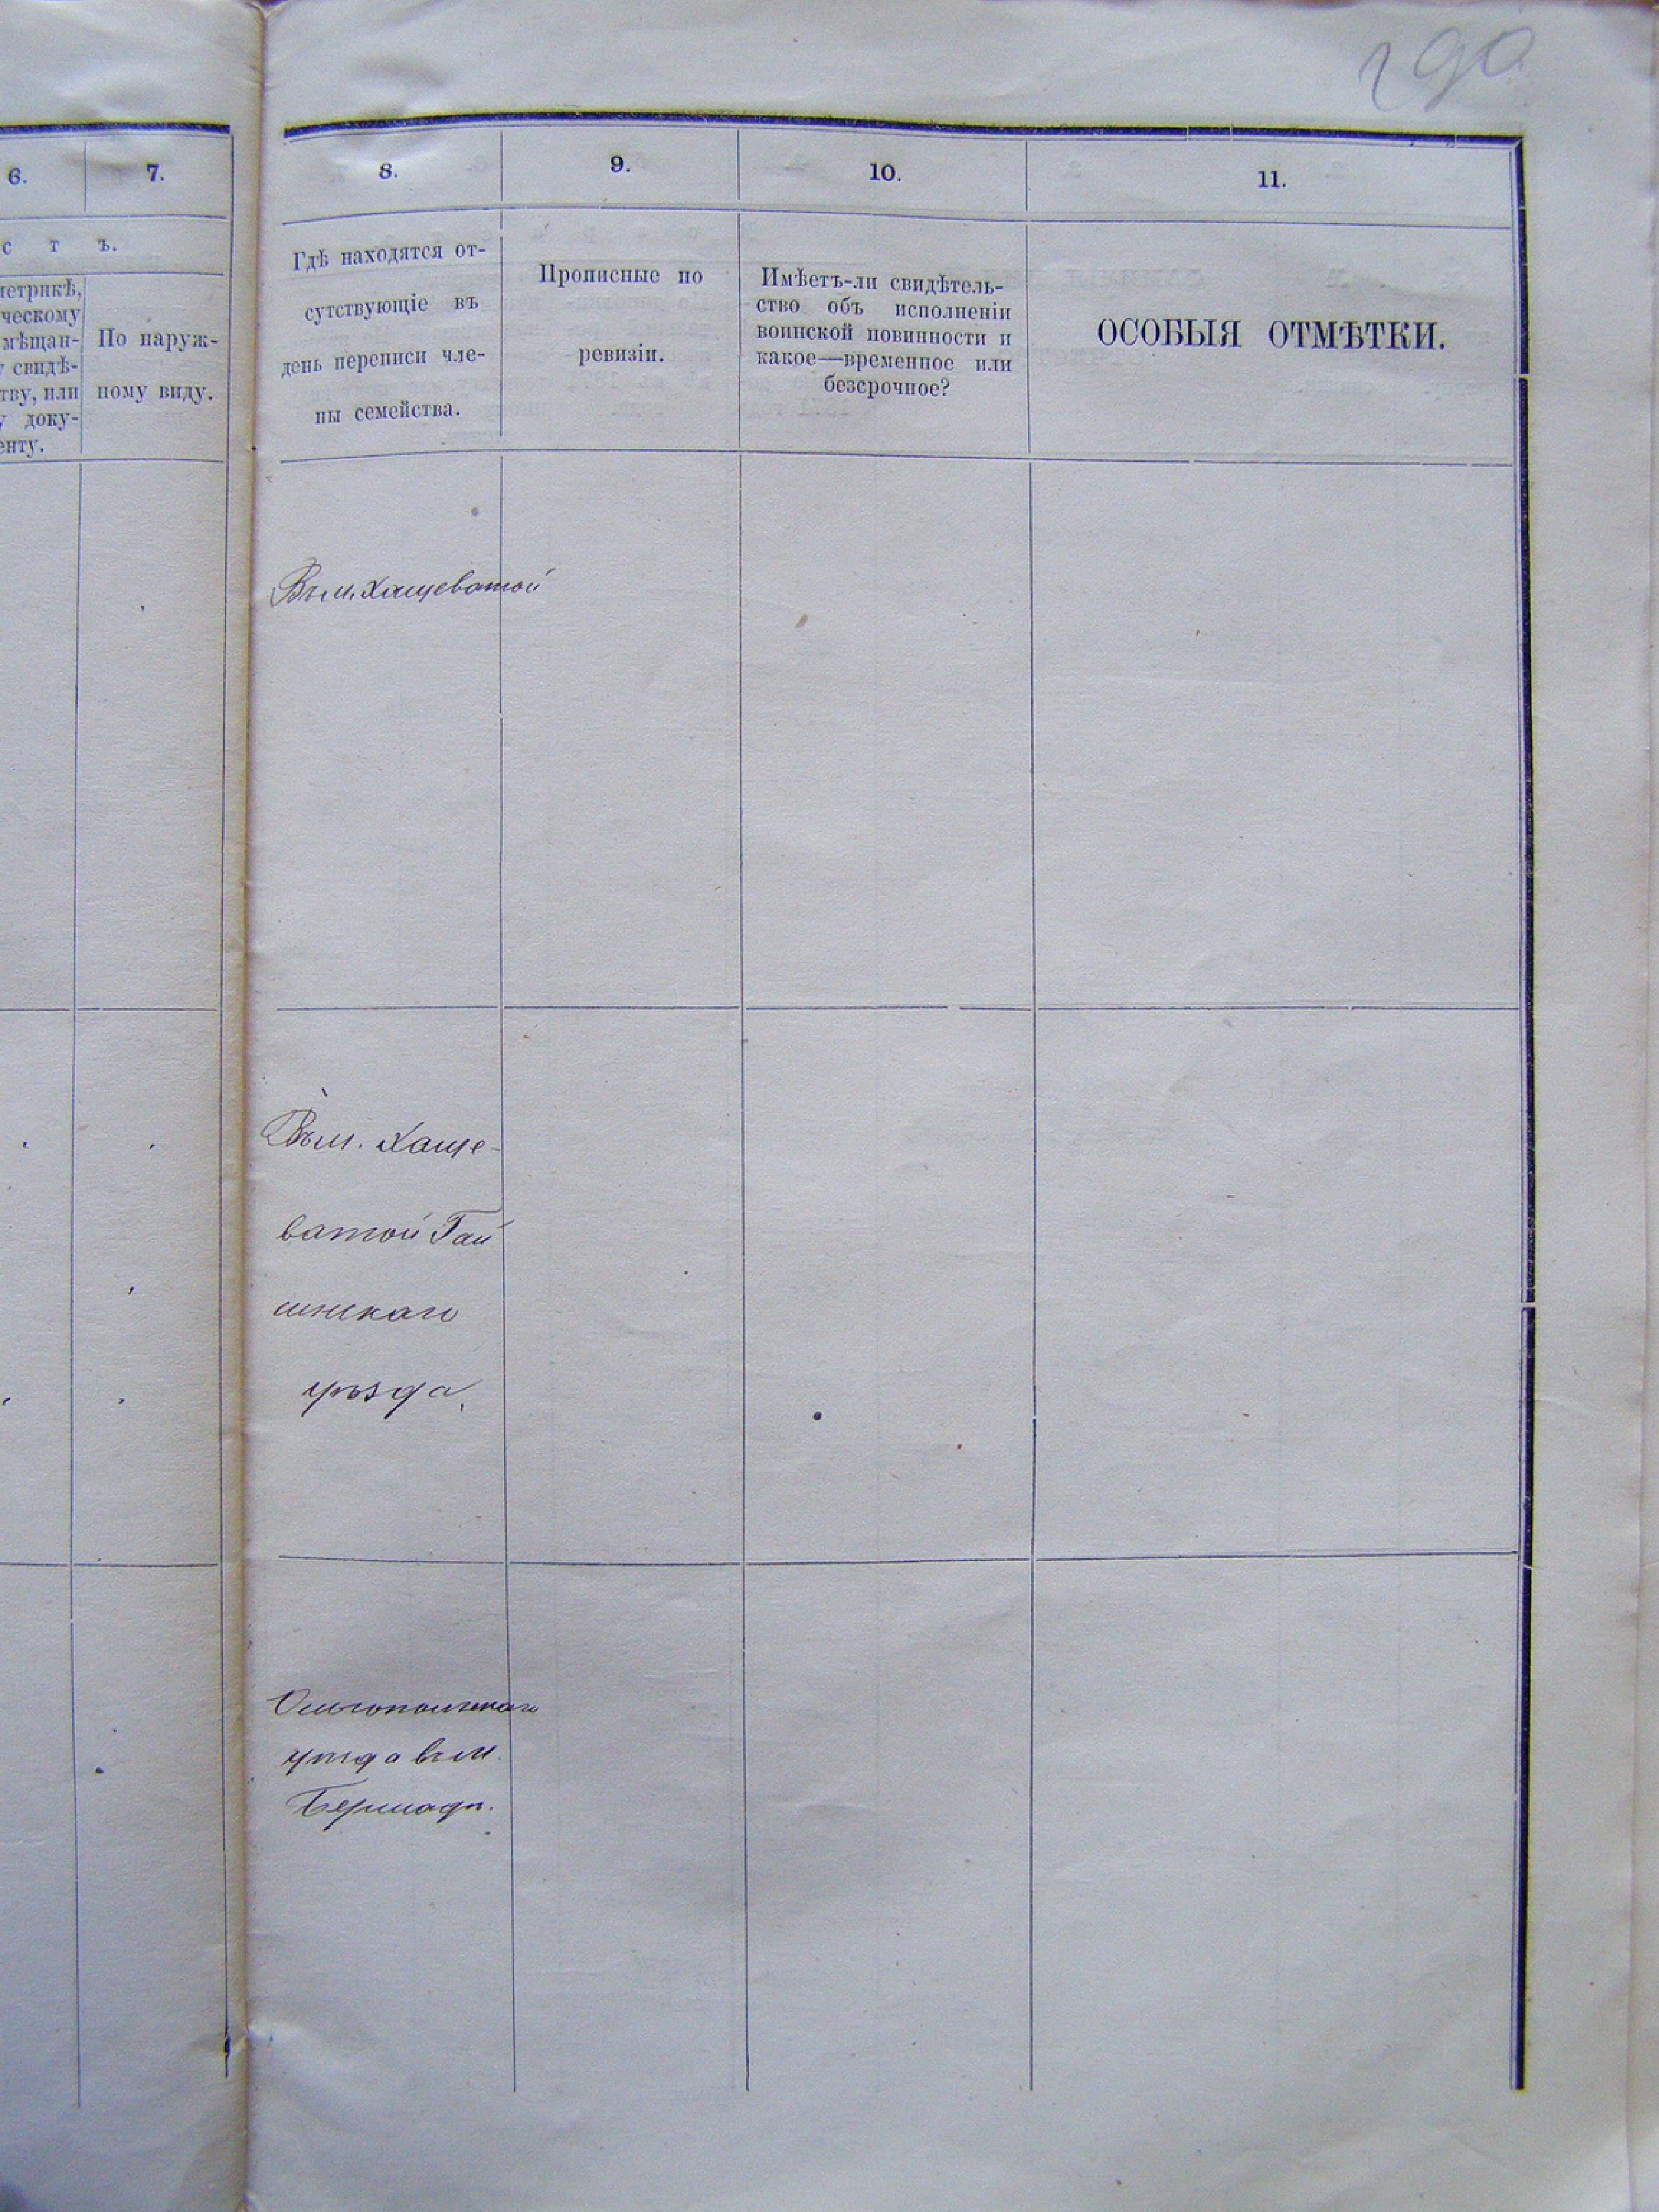 290
6.
7.
с т ъ.
метрикѣ,
ческому
мѣщан-
свидѣ-
тву, или
у доку-
енту.
По наруж-
ному виду.
8.
9.
10.
11.
Гдѣ находятся от-
сутствующіе въ
день переписи чле-
ны семейства.
Прописные по
ревизіи.
Имѣетъ-ли свидѣтель-
ство объ исполненіи
воинской повинности и
какое—временное или
безсрочное?
ОСОБЫЯ ОТМѢТКИ.
Въ м. Хащеватой
Въ м. Хаще-
ватой Гай
синскаго
уѣзда
Ольгопольскаго
уѣзда въ м.
Бершади.